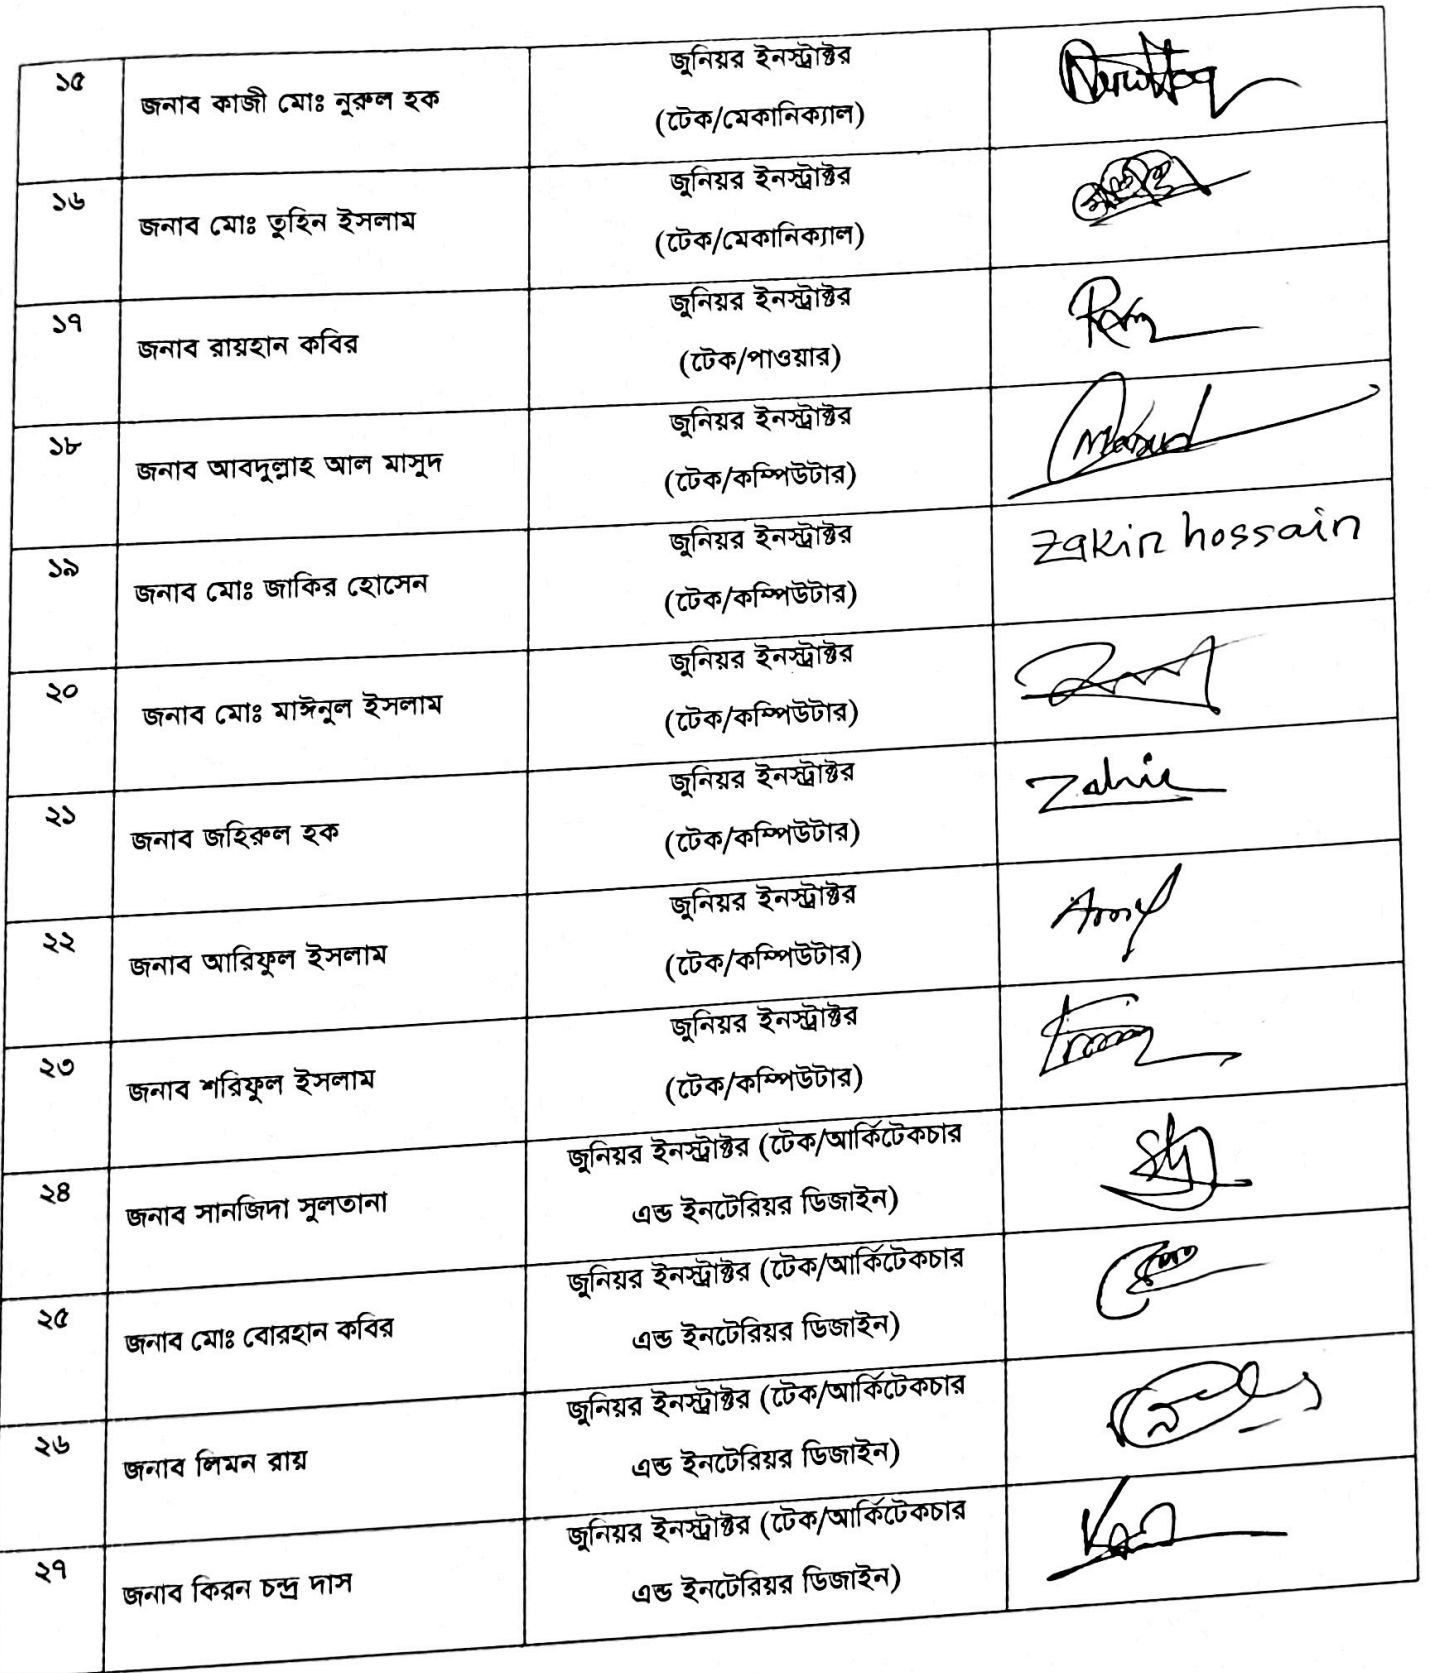 ১৫ জনাব কাজী মোঃ নুরুল হক জুনিয়র ইনস্ট্রাক্টর
(টেক/মেকানিক্যাল)
১৬ জনাব মোঃ তুহিন ইসলাম জুনিয়র ইনস্ট্রাক্টর
(টেক/মেকানিক্যাল)
১৭ জনাব রায়হান কবির জুনিয়র ইনস্ট্রাক্টর
(টেক/পাওয়ার)
১৮ জনাব আবদুল্লাহ আল মাসুদ জুনিয়র ইনস্ট্রাক্টর
(টেক/কম্পিউটার)
১৯ জনাব মোঃ জাকির হোসেন জুনিয়র ইনস্ট্রাক্টর zakir hossain
(টেক/কম্পিউটার)
২০ জনাব মোঃ মাঈনুল ইসলাম জুনিয়র ইনস্ট্রাক্টর
(টেক/কম্পিউটার)
২১ জনাব জহিরুল হক জুনিয়র ইনস্ট্রাক্টর Zahir
(টেক/কম্পিউটার)
২২ জনাব আরিফুল ইসলাম জুনিয়র ইনস্ট্রাক্টর
(টেক/কম্পিউটার)
২৩ জনাব শরিফুল ইসলাম জুনিয়র ইনস্ট্রাক্টর
(টেক/কম্পিউটার)
২৪ জনাব সানজিদা সুলতানা জুনিয়র ইনস্ট্রাক্টর (টেক/আর্কিটেকচার
এন্ড ইনটেরিয়র ডিজাইন)
২৫ জনাব মোঃ বোরহান কবির জুনিয়র ইনস্ট্রাক্টর (টেক/আর্কিটেকচার
এন্ড ইনটেরিয়র ডিজাইন)
২৬ জনাব লিমন রায় জুনিয়র ইনস্ট্রাক্টর (টেক/আর্কিটেকচার
এন্ড ইনটেরিয়র ডিজাইন)
২৭ জনাব কিরন চন্দ্র দাস জুনিয়র ইনস্ট্রাক্টর (টেক/আর্কিটেকচার
এন্ড ইনটেরিয়র ডিজাইন)